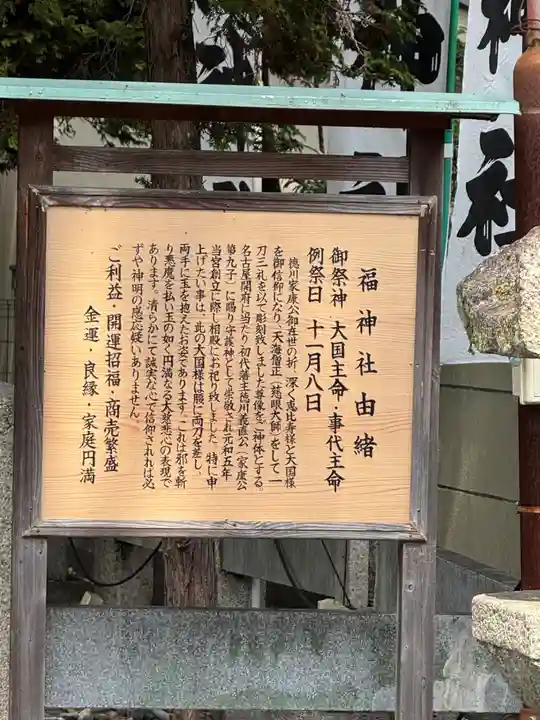 福神社由緒
御祭神 大国主命・事代主命
例祭日 十一月八日
徳川家康公御在世の折、深く恵比寿様と大国様
を御信仰になり、天海僧正(慈眼大師)をして一
刀三礼を以て彫刻致しました尊像をご神体とする。
名古屋開府に当たり初代藩主徳川義直公(家康公
第九子)に賜り守護神として崇敬され元和五年
当宮創立に際し相殿にお祀り致しました。特に申
上げたい事は、此の大国様は腰に両刀を差し、
両手に玉を抱えたお姿であります。これは邪を斬
り悪魔を払い玉の如く円満なる大慈悲心の表現で
あります。清らかにて誠実な心で信仰されれば必
ずや神明の感応疑いありません。
ご利益・開運招福・商売繁盛
金運・良縁・家庭円満
神
社